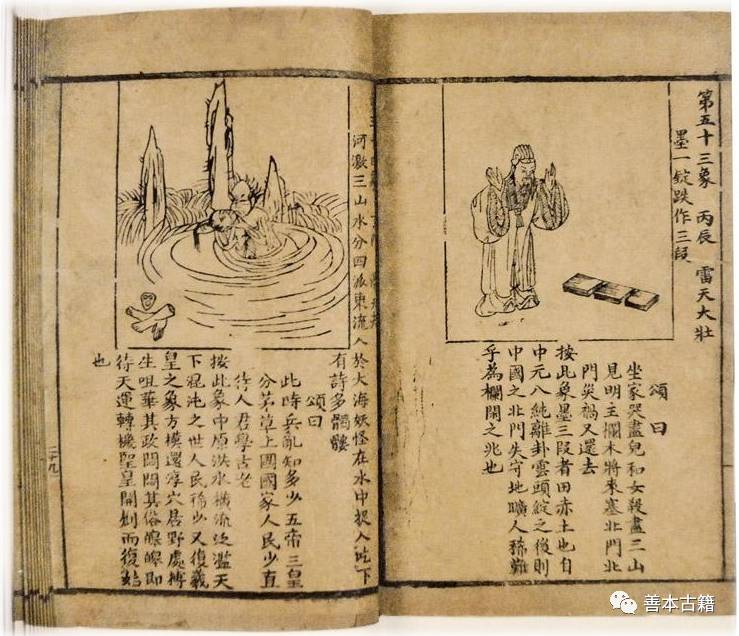 第五十三象 丙辰 雷天大壯
墨一錠跌作三段
頌曰
坐家哭盡兒和女殺盡三山
見明主攔木將來塞北門北
門災禍又還去
按此象墨三段者田赤土也自
中元八純離卦雲頭綻之後則
中國之北門失守地曠人稀難
乎為欄閑之兆也
河激三山水分四派東流入於大海妖怪在水中捉人吃下
有許多髑髏
頌曰
此時兵亂知多少五帝三皇
分茅草上國國家人民少直
待人君學古老
按此象中原洪水橫流泛濫天
下混沌之世人民稀少又復羲
皇之象方模還淳穴居野處摶
生咀華其政悶悶其俗皞皞即
待天運轉機聖皇開創而復始
也
二十九
善本古籍